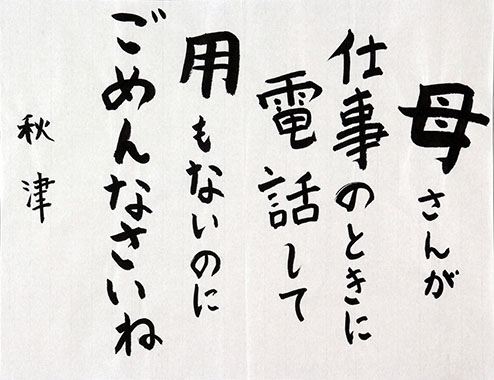 母さんが
仕事のときに
電話して
用もないのに
ごめんなさいね
秋津